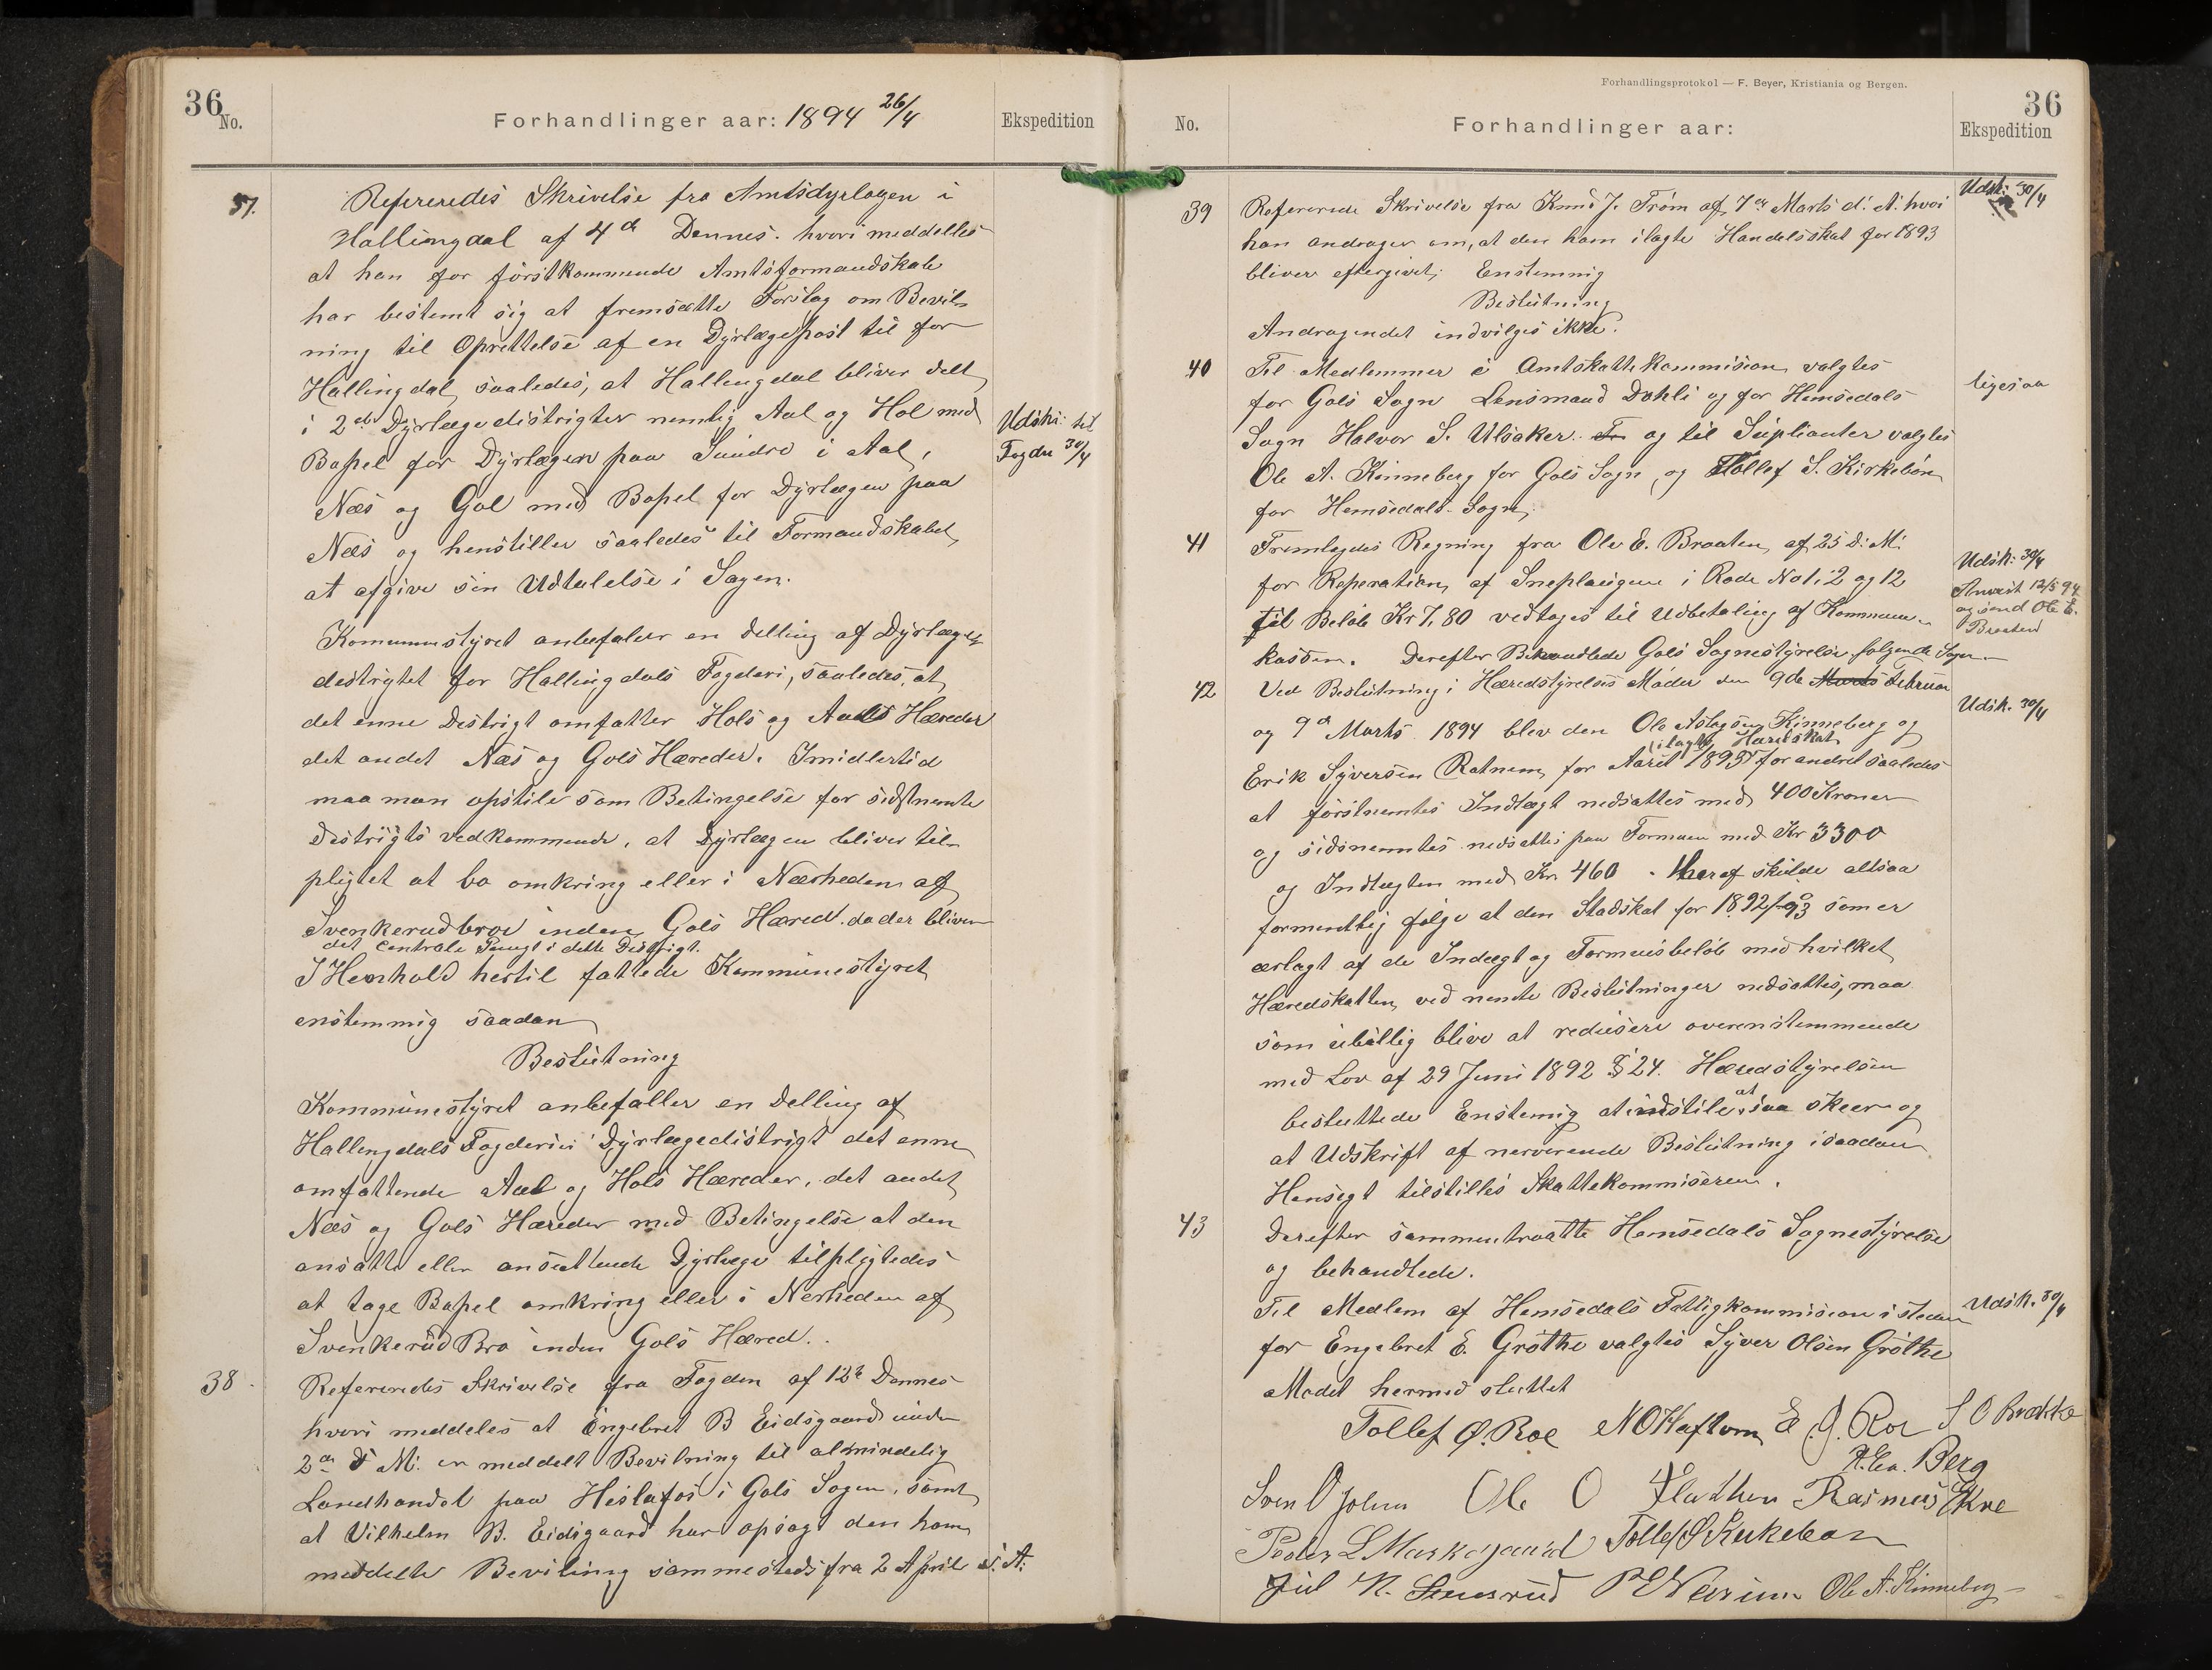 36
No.
Forhandlinger aar: 1894 26/4
Ekspedition
37.
Refereredes Skrivelse fra Amtsdyrlægen i
Hallingdal af 4de Dennes. hvori meddelles
at han for förstkommende Amtsformandskab
har bestemt sig at fremsætte Forslag om Bevil-
ning til Oprettelse af en Dyrlægepost til for
Hallingdal, saaledes, at Hallingdal bliver delt
i 2de Dyrlægedistrigter nemlig Aal og Hol med
Bopel for Dyrlægen paa Sundre i Aal,
Næs og Gol med Bopel for Dyrlægen paa
Næs og henstiller saaledes til Formandskabet
at afgive sin Udtalelse i Sagen.
Udskr. til
Fogden 30/4
Komunestyret anbefaler en delling af Dyrlæge-
destrigtet for Hallingdals Fogderi, saaledes, at
det enne Destrigt omfatter Hols og Aals Hæreder
det andet Næs og Gols Hæreder. Imidlertid
maa man opstile som Betingelse for sidstnemte
Destrigts vedkommende, at Dyrlægen bliver til-
pligtet at bo omkring eller i Nærheden af
Svenkerudbroe inden Gols Hæred. da der bliver
det Centrale Pungt i dette Distrigt.
I Henhold hertil fattede Kommunestyret
enstemmig saadan
Beslutning
Kommunestyret anbefaller en Delling af
Hallingdals Fogderi i Dyrlægedistrigt det enne
omfattende Aal og Hols Hæreder, det andet
Næs og Gols Hæreder med Betingelse at den
ansatte eller ansættende Dyrlæge tilpligtedes
at tage Bopel omkring eller i Nerheden af
Svenkerud Bro inden Gols Hæred.
38
Refereredes Skrivelse fra Fogden af 12te Dennes
hvori meddeles at Engebret B Eidsgaard under
2den d M. er meddelt Bevilning til almindelig
Landhandel paa Heslafos i Gols Sogn, samt
at Vilhelm B. Eidsgaard har opsagt den ham
meddelte Beviling sammesteds fra 2 April d. A.
Forhandlingsprotokol — F. Beyer, Kristiania og Bergen.
36
No.
Forhandlinger aar:
Ekspedition
39
Refererede Skrivelse fra Knud J. Tröm af 7de Marts d. A. hvori
han andrager om, at den ham ilagte Handelsskat for 1893
bliver eftergivet, Enstemmig
Beslutning
Andragendet indvilges ikke.
Udsk: 30/4
40
Til Medlemmer i Amtskattekommision valgtes
for Gols Sogn Lensmand Dahli og for Hemsedals
Sogn Halvor S. Ulsaker. og til Suplianter valgtes
Ole A. Kinneberg for Gols Sogn, og Tollef S. Kirkebön
for Hemsedals Sogn,
ligesaa
41
Fremlagdes Regning fra Ole E. Braaten af 25 d. M.
for Reperation af Sneplaugene i Rode No 1, 2 og 12
til Belöb Kr 7,80 vedtages til Udbetaling af Kommune-
kassen. Derefter Behandlede Gols Sognestyrelse fölgende Sager
Udsk: 30/4
Anvist 12/5 94
og send Ole E.
Braaten
42
Ved Beslutning i Hæredstyrelses Möder den 9de Marts Februar
og 9de Marts 1894 blev den Ole Aslagsen Kinneberg og
ilagte Hæredskat
Erik Syversen Rotneim for Aaret 1893 forandret saaledes
at förstnemtes Indtægt nedsattes med 400 Kroner
og sidsnemtes nedsattes paa Formuen med Kr 3300
og Indtægten med Kr. 460 . Heraf skulde altsaa
formentlig fölge at den Stadskat for 1892/93 som er
erlagt af de Indtægt og Formuesbelöb med hvilket
Hæredskatten ved nemte Beslutninger nedsattes, maa
som ubillig blive at redusere overenstemmende
med Lov af 29 Juni 1892 § 24. Hæredstyrelsen
besluttede Enstemig at indstile at saa skeer og
at Udskrift af nerverende Beslutning i saadan
Hensigt tilstilles Skattekommiseren.
Udsk. 30/4
43
Derefter sammentraatte Hemsedals Sognestyrelse
og behandlede.
Til Medlem af Hemsedals Fattigkommision i steden
for Engebret E. Gröthe valgtes Syver Olsen Gröthe
Udsk. 30/4
Mödet hermed sluttet
Tollef Ø. Roe N O Haftorn E J. Roe S O Brække
Berg
Sven O Ole O Flathen Rasmus Skre
Peder L Markegaard Tollef S Kirkeböen
Juel K. P E Ole A. Kinneberg